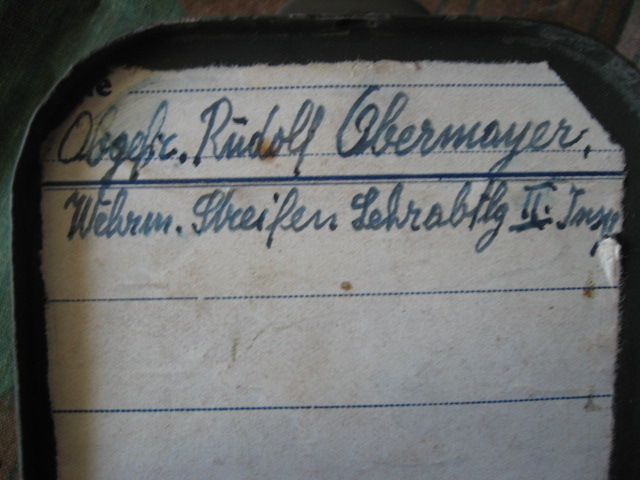 e
Obgefr. Rudolf Obermayer.
Wehrm. Streifen Lehrabtlg II. Insp